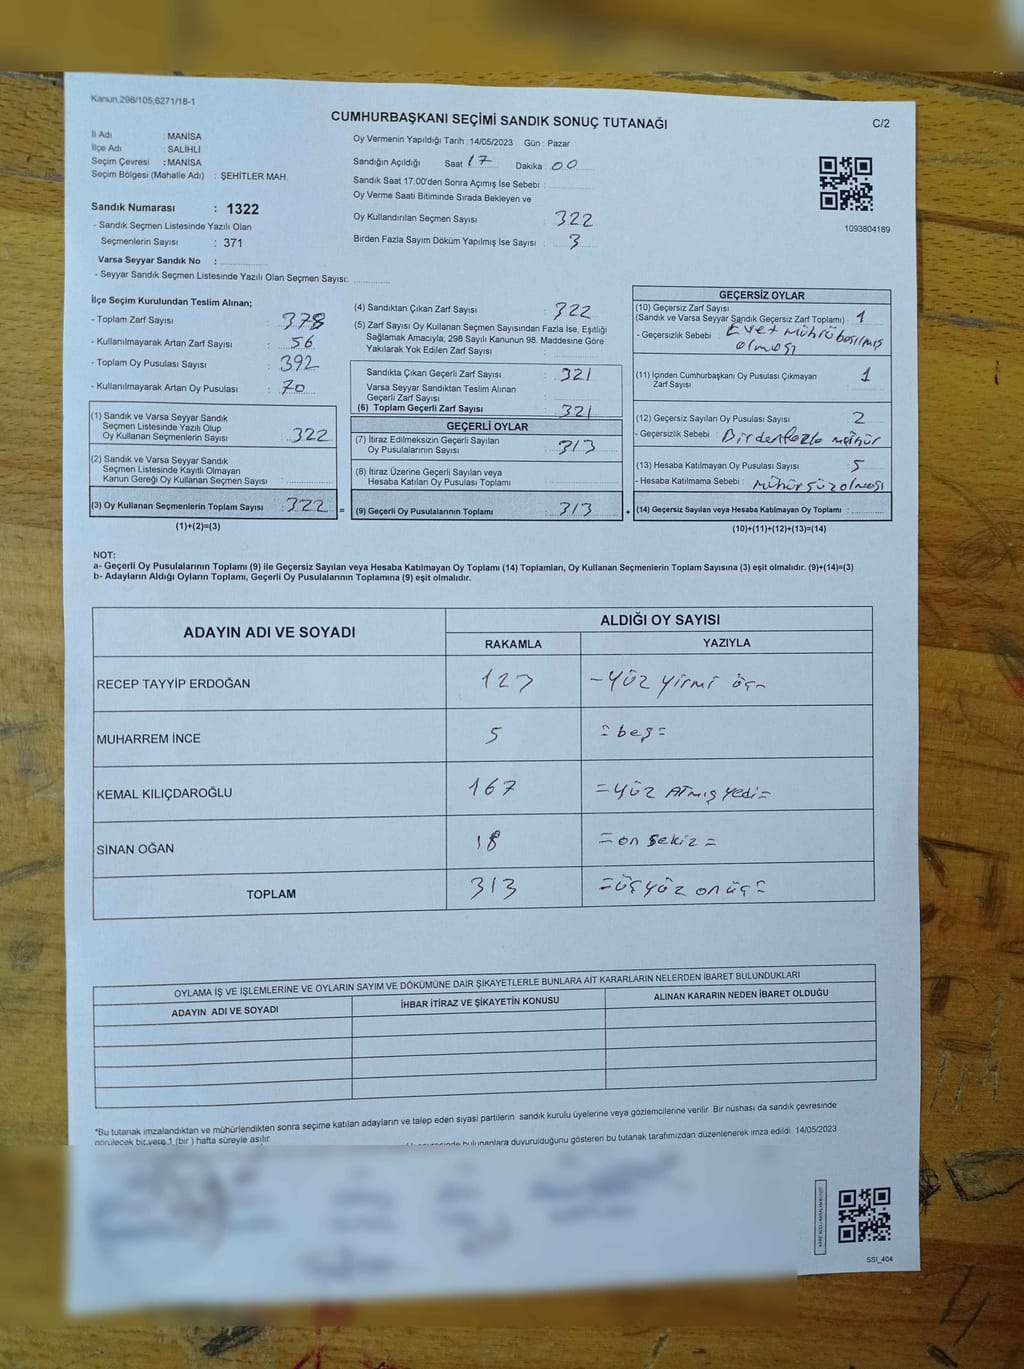 Kanun,298/105;6271/18-1
CUMHURBAŞKANI SEÇİMİ SANDIK SONUÇ TUTANAĞI
C/2
İl Adı : MANİSA
İlçe Adı : SALİHLİ
Seçim Çevresi : MANİSA
Seçim Bölgesi (Mahalle Adı) : ŞEHİTLER MAH.
Sandık Numarası : 1322
- Sandık Seçmen Listesinde Yazılı Olan
Seçmenlerin Sayısı : 371
Varsa Seyyar Sandık No :
- Seyyar Sandık Seçmen Listesinde Yazılı Olan Seçmen Sayısı:
Oy Vermenin Yapıldığı Tarih : 14/05/2023 Gün : Pazar
Sandığın Açıldığı Saat 17 Dakika : 00
Sandık Saat 17:00'den Sonra Açımış İse Sebebi :
Oy Verme Saati Bitiminde Sırada Bekleyen ve
Oy Kullandırılan Seçmen Sayısı 322
Birden Fazla Sayım Döküm Yapılmış İse Sayısı : 3
1093804189
İlçe Seçim Kurulundan Teslim Alınan;
- Toplam Zarf Sayısı : 378
- Kullanılmayarak Artan Zarf Sayısı : 56
- Toplam Oy Pusulası Sayısı : 392
- Kullanılmayarak Artan Oy Pusulası : 70
(1) Sandık ve Varsa Seyyar Sandık
Seçmen Listesinde Yazılı Olup
Oy Kullanan Seçmenlerin Sayısı : 322
(2) Sandık ve Varsa Seyyar Sandık
Seçmen Listesinde Kayıtlı Olmayan
Kanun Gereği Oy Kullanan Seçmen Sayısı :
(3) Oy Kullanan Seçmenlerin Toplam Sayısı : 322 =
(1)+(2)=(3)
(4) Sandıktan Çıkan Zarf Sayısı : 322
(5) Zarf Sayısı Oy Kullanan Seçmen Sayısından Fazla İse, Eşitliği
Sağlamak Amacıyla; 298 Sayılı Kanunun 98. Maddesine Göre
Yakılarak Yok Edilen Zarf Sayısı :
Sandıkta Çıkan Geçerli Zarf Sayısı : 321
Varsa Seyyar Sandıktan Teslim Alınan
Geçerli Zarf Sayısı :
(6) Toplam Geçerli Zarf Sayısı : 321
GEÇERLİ OYLAR
(7) İtiraz Edilmeksizin Geçerli Sayılan
Oy Pusulalarının Sayısı : 313
(8) İtiraz Üzerine Geçerli Sayılan veya
Hesaba Katılan Oy Pusulası Toplamı :
(9) Geçerli Oy Pusulalarının Toplamı : 313 +
GEÇERSİZ OYLAR
(10) Geçersiz Zarf Sayısı
(Sandık ve Varsa Seyyar Sandık Geçersiz Zarf Toplamı) : 1
- Geçersizlik Sebebi : Evet mührü basılmış
olması
(11) İçinden Cumhurbaşkanı Oy Pusulası Çıkmayan
Zarf Sayısı 1
(12) Geçersiz Sayılan Oy Pusulası Sayısı 2
- Geçersizlik Sebebi : Birden fazla mühür
(13) Hesaba Katılmayan Oy Pusulası Sayısı : 5
- Hesaba Katılmama Sebebi : mühürsüz olması
(14) Geçersiz Sayılan veya Hesaba Katılmayan Oy Toplamı :
(10)+(11)+(12)+(13)=(14)
NOT:
a- Geçerli Oy Pusulalarının Toplamı (9) ile Geçersiz Sayılan veya Hesaba Katılmayan Oy Toplamı (14) Toplamları, Oy Kullanan Seçmenlerin Toplam Sayısına (3) eşit olmalıdır. (9)+(14)=(3)
b- Adayların Aldığı Oyların Toplamı, Geçerli Oy Pusulalarının Toplamına (9) eşit olmalıdır.
ADAYIN ADI VE SOYADI
ALDIĞI OY SAYISI
RAKAMLA YAZIYLA
RECEP TAYYİP ERDOĞAN 123 -yüz yirmi üç-
MUHARREM İNCE 5 =beş=
KEMAL KILIÇDAROĞLU 167 =yüz Atmış yedi=
SİNAN OĞAN 18 =on sekiz=
TOPLAM 313 =üçyüz onüç=
OYLAMA İŞ VE İŞLEMLERİNE VE OYLARIN SAYIM VE DÖKÜMÜNE DAİR ŞİKAYETLERLE BUNLARA AİT KARARLARIN NELERDEN İBARET BULUNDUKLARI
ADAYIN ADI VE SOYADI İHBAR İTİRAZ VE ŞİKAYETİN KONUSU ALINAN KARARIN NEDEN İBARET OLDUĞU
*Bu tutanak imzalandıktan ve mühürlendikten sonra seçime katılan adayların ve talep eden siyasi partilerin sandık kurulu üyelerine veya gözlemcilerine verilir. Bir nüshası da sandık çevresinde
görülecek bir yere 1 (bir ) hafta süreyle asılır.
bulunanlara duyurulduğunu gösteren bu tutanak tarafımızdan düzenlenerek imza edildi. 14/05/2023
SSI_404